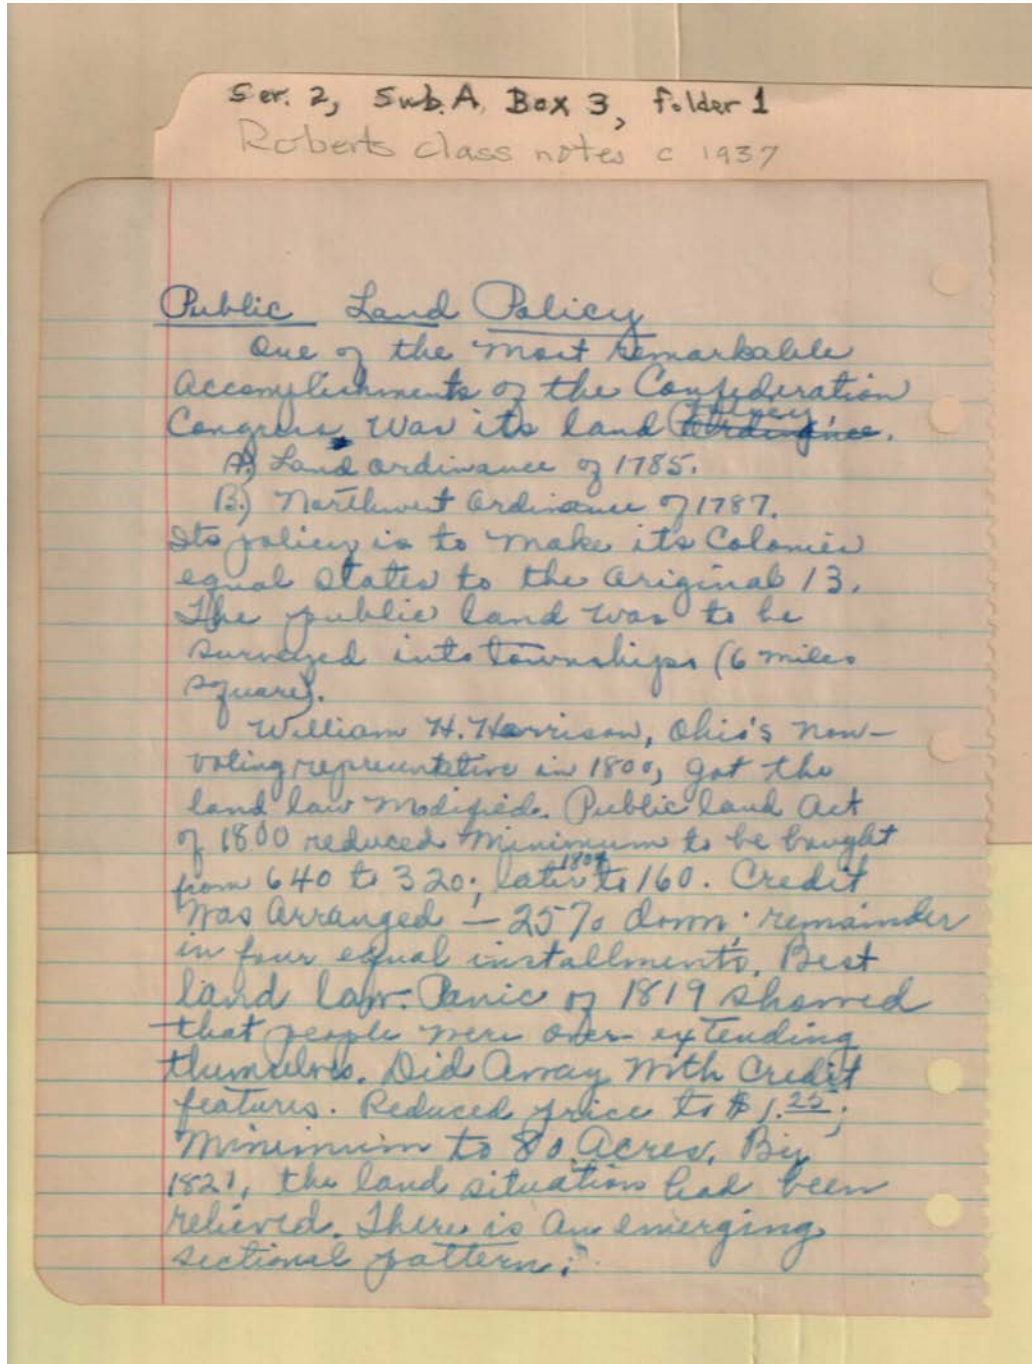 Ser. 2, Sub. A, Box 3, folder 1
Roberts class notes c 1937
Public Land Policy
One of the most remarkable
Accomplishments of the Confederation
Congress was its land policy.
A.) Land ordinance of 1785.
B.) Northwest Ordinance of 1787.
Its policy is to make its Colonies
equal States to the Original 13.
The public land was to be
surveyed into townships (6 miles
square).
William H. Harrison, Ohio's non-
voting representative in 1800, got the
land law modified. Public land Act
of 1800 reduced minimum to be bought
from 640 to 320; later 1804 to 160. Credit
was Arranged – 25% down; remainder
in four equal installments. Best
land law. Panic of 1819 showed
that people were over-extending
themselves. Did Away with Credit
features. Reduced price to $1.25;
Minimum to 80 Acres. By
1821, the land situation had been
relieved. There is an emerging
sectional pattern: